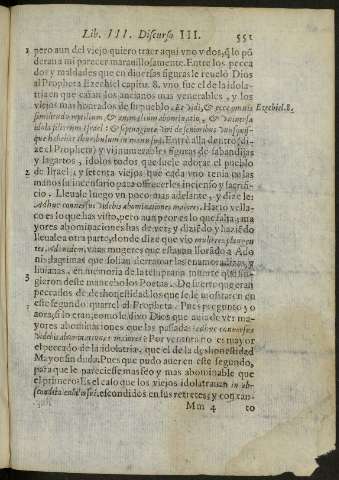 Lib. III. Discurso III. 551
1 pero aun del viejo quiero traer aqui vno y dos, q̃ lo põ
derana mi parecer marauillosamente. Entre los pecca
dos y maldades que en diuersas figuras le reueló Dios
al Propheta Ezechiel capitu. 8. vno fue el de la idola-
tria en que caían los ancianos mas venerables, y los
viejos mas honrados de su pueblo. Et vidi, & ecce omnis Ezechiel. 8.
similitudo reptilium, & animalium abominatio, & vniuersa
idola filiorum Israel: & septuaginta viri de senioribus vnusquis-
que habebat thuribulum in manu sua. Entrè alla dentro (di-
ze el Propheta) y vi innumerables figuras de sabandijas
y lagartos, idolos todos que suele adorar el pueblo
2 de Israel, y setenta viejos que cada vno tenia en las
manos su incensario para offrecerles incienso y sacrifi-
cio. Lleuale luego vn poco mas adelante, y dize le:
Adhuc conuersus videbis abominationes maiores. Harto vella-
co es lo que has visto, pero aun peor es lo que falta, ma
yores abominaciones has de ver: y diziẽdo y haziẽdo
lleuale a otra parte, donde dize que vio mulieres plangen
tes Adonidem, vnas mugeres que estauan llorãdo a Ado
nis, lagrimas que solian derramar las enamoradizas y
liuianas, en memoria de la temprana muerte que fin-
3 gieron deste mancebo los Poetas. De suerte que eran
peccados de deshonestidad los que se le mostraron en
este segundo quartel al Propheta. Pues pregunto yo
aora, si lo eran, como le dixo Dios que auia de ver ma-
yores abominaciones que las passadas: adhuc conuersus
videbis abominationes maiores? Por ventura no es mayor
el peccado de la idolatria, que el de la deshonestidad
Mayor sin duda. Pues que pudo auer en este segundo,
para que le pareciesse mas feo y mas abominable que
el primero? Es el caso que los viejos idolatrauan in abs-
condito cubiculi sui, escondidos en sus retretes, y con tan-
Mm 4 to